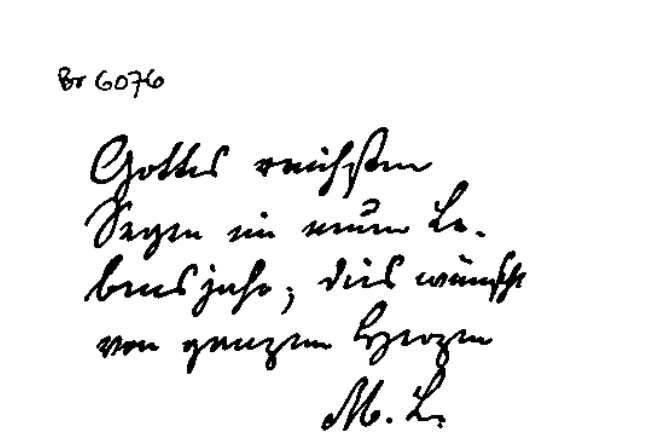 Br 6076
Gottes reichsten
Segen im neuen Le-
bensjahr, dies wünscht
von ganzem Herzen
M. L.